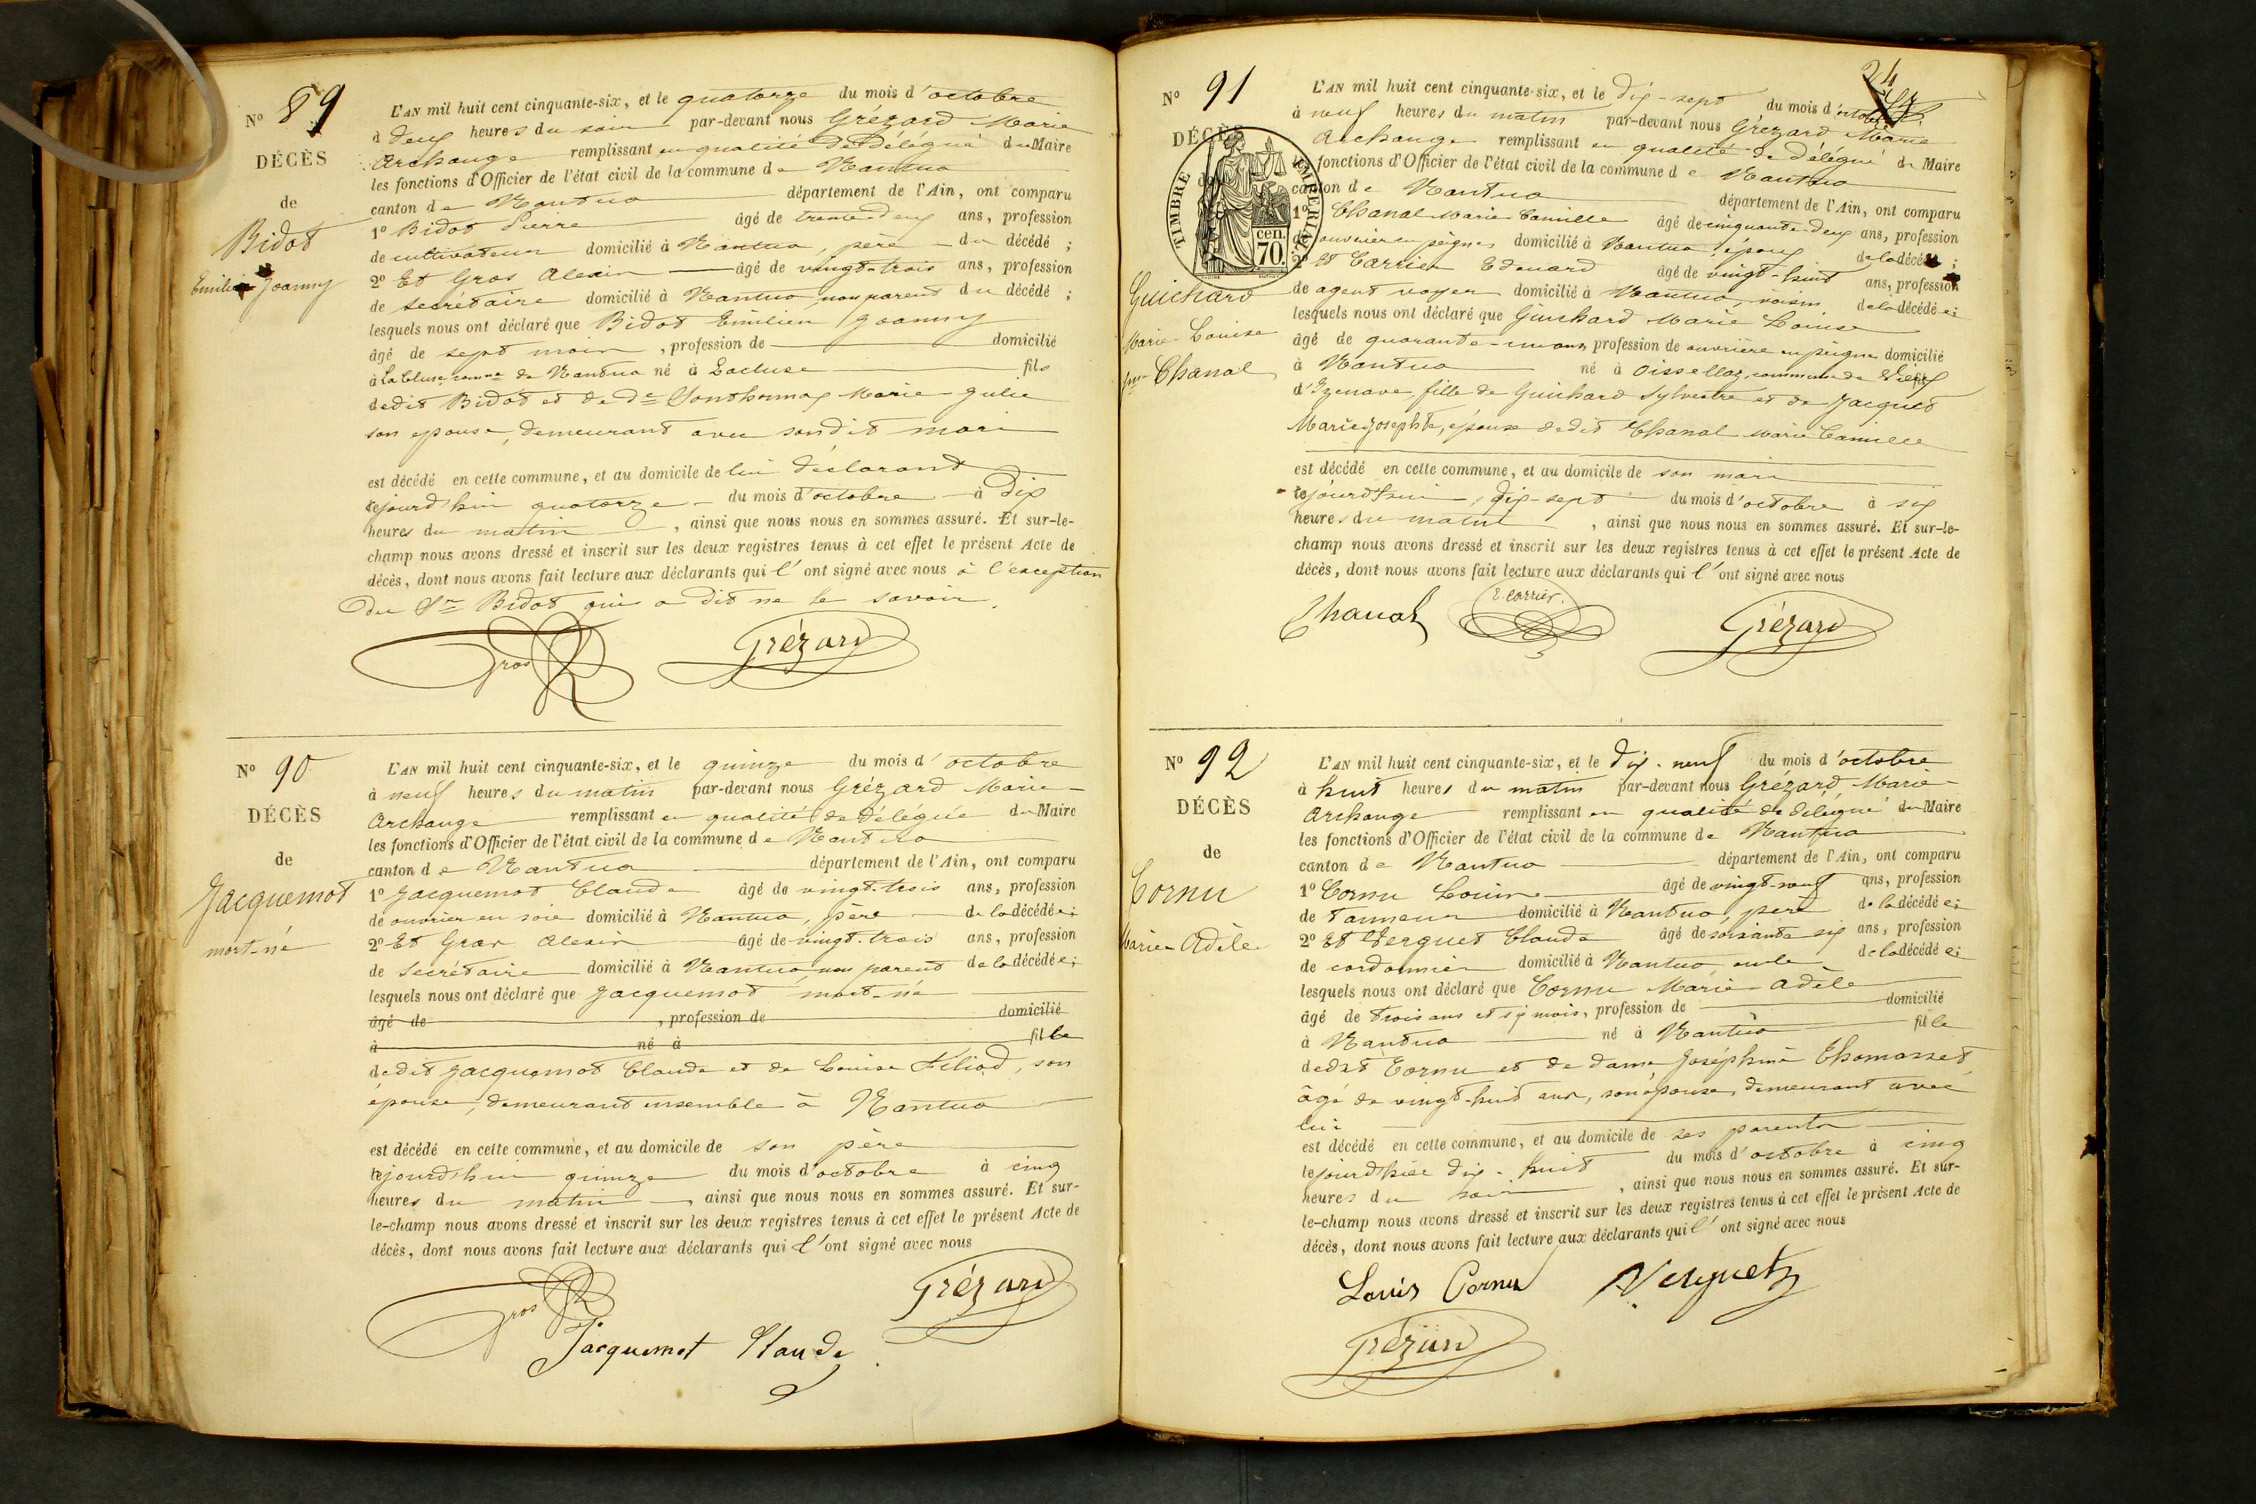 N° 89
DÉCÈS
de
Bidot
Emilien Joanny
L'AN mil huit cent cinquante-six, et le quatorze du mois d'octobre
à deux heures du soir par-devant nous Grézard Marie
Archange remplissant en qualité de Délégué du Maire
les fonctions d'Officier de l'état civil de la commune de Nantua
canton de Nantua département de l'Ain, ont comparu
1° Bidot Pierre âgé de trente-deux ans, profession
de cultivateur domicilié à Nantua, père du décédé ;
2° Et Gros Alexis âgé de vingt-trois ans, profession
de secrétaire domicilié à Nantua, non parent du décédé ;
lesquels nous ont déclaré que Bidot Emilien Joanny
âgé de sept mois, profession de domicilié
à La Cluse, comne de Nantua né à Lacluse fils
dudit Bidot et de de Sonthonnax Marie Julie
son épouse, demeurant avec sondit mari
est décédé en cette commune, et au domicile de lui déclarant
cejourd'hui quatorze du mois d'octobre à Dix
heures du matin, ainsi que nous nous en sommes assuré. Et sur-le-
champ nous avons dressé et inscrit sur les deux registres tenus à cet effet le présent Acte de
décès, dont nous avons fait lecture aux déclarants qui l'ont signé avec nous à l'exception
du Sr Bidot qui a dit ne le savoir.
Gros Grézard
N° 90
DÉCÈS
de
Jacquemot
mort-né
L'AN mil huit cent cinquante-six, et le quinze du mois d'octobre
à neuf heures du matin par-devant nous Grézard Marie-
Archange remplissant en qualité de Délégué du Maire
les fonctions d'Officier de l'état civil de la commune de Nantua
canton de Nantua département de l'Ain, ont comparu
1° Jacquemot Claude âgé de vingt-trois ans, profession
de ouvrier en soie domicilié à Nantua, père de la décédée ;
2° Et Gros Alexis âgé de vingt-trois ans, profession
de secrétaire domicilié à Nantua, non parent de la décédée ;
lesquels nous ont déclaré que Jacquemot mort-né
âgé de , profession de domicilié
à né à fille
dudit Jacquemot Claude et de Louise Féliod, son
épouse, demeurant ensemble à Nantua
est décédé en cette commune, et au domicile de son père
cejourd'hui quinze du mois d'octobre à cinq
heures du matin, ainsi que nous nous en sommes assuré. Et sur-
le-champ nous avons dressé et inscrit sur les deux registres tenus à cet effet le présent Acte de
décès, dont nous avons fait lecture aux déclarants qui l'ont signé avec nous
Gros Grézard
Jacquemot Claude
N° 91
DÉCÈS
de
TIMBRE IMPERIAL
70 cen.
Guichard
Marie-Louise
fme Chanal
L'AN mil huit cent cinquante-six, et le dix-sept du mois d'octobre
à neuf heures du matin par-devant nous Grézard Marie
Archange remplissant en qualité de délégué du Maire
les fonctions d'Officier de l'état civil de la commune de Nantua
canton de Nantua département de l'Ain, ont comparu
1° Chanal Marie Camille âgé de cinquante-deux ans, profession
de ouvrier en peignes domicilié à Nantua, époux de la décédée ;
2° Et Carrier Edouard âgé de vingt-huit ans, profession
de agent voyer domicilié à Nantua, voisin de la décédée ;
lesquels nous ont déclaré que Guichard Marie Louise
âgé de quarante-un ans, profession de ouvrière en peignes domicilié
à Nantua né à Oissellaz, commune de Vieux
d'Izenave, fille de Guichard Sylvestre et de Jacquet
Marie Josephte, épouse dudit Chanal Marie Camille
est décédé en cette commune, et au domicile de son mari
cejourd'hui dix-sept du mois d'octobre à six
heures du matin, ainsi que nous nous en sommes assuré. Et sur-le-
champ nous avons dressé et inscrit sur les deux registres tenus à cet effet le présent Acte de
décès, dont nous avons fait lecture aux déclarants qui l'ont signé avec nous
Chanal E. Carrier. Grézard
N° 92
DÉCÈS
de
Cornu
Marie-Adèle
L'AN mil huit cent cinquante-six, et le dix-neuf du mois d'octobre
à huit heures du matin par-devant nous Grézard Marie-
Archange remplissant en qualité de délégué du Maire
les fonctions d'Officier de l'état civil de la commune de Nantua
canton de Nantua département de l'Ain, ont comparu
1° Cornu Louis âgé de vingt-neuf ans, profession
de tanneur domicilié à Nantua, père de la décédée ;
2° Et Verguet Claude âgé de soixante six ans, profession
de cordonnier domicilié à Nantua, oncle de la décédée ;
lesquels nous ont déclaré que Cornu Marie-Adèle
âgé de trois ans et six mois, profession de domicilié
à Nantua né à Nantua fille
dudit Cornu et de dame Joséphine Thomasset,
âgé de vingt-huit ans, son épouse, demeurant avec
lui
est décédé en cette commune, et au domicile de ses parents
cejourd'hier dix-huit du mois d'octobre à cinq
heures du soir, ainsi que nous nous en sommes assuré. Et sur-
le-champ nous avons dressé et inscrit sur les deux registres tenus à cet effet le présent Acte de
décès, dont nous avons fait lecture aux déclarants qui l'ont signé avec nous
Louis Cornu Verguet
Grézard